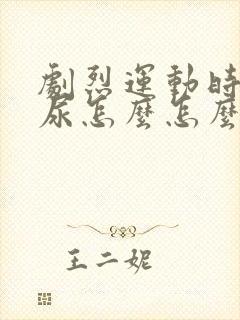 劇烈運動時
尿怎麼怎麼
王二妮